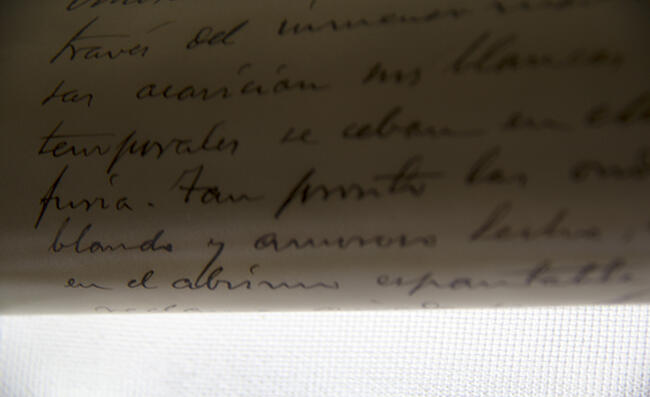 través del inmenso
sas acarician sus blancas
temporales se ceban en
furia. Tan pronto las
blando y amoroso lecho,
en el abismo espantable